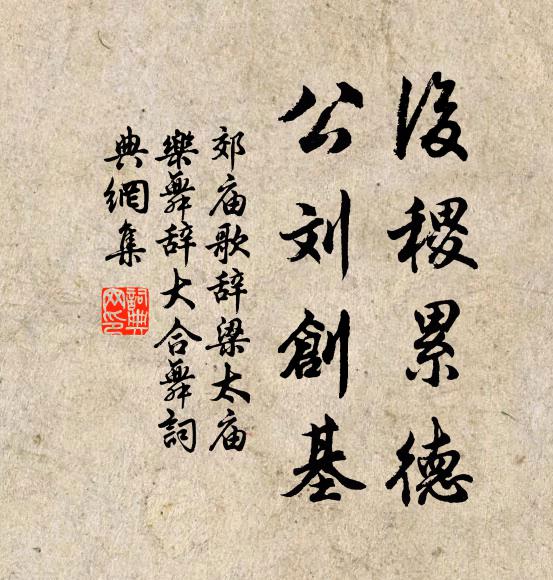 後稷累德
公刘創基
郊庙歌辞梁太庙
樂舞辞大合舞詞
典網集
詞典
网印